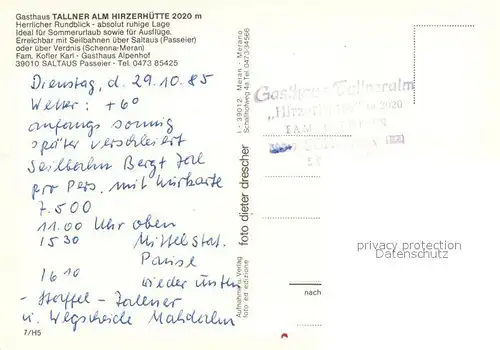 Gasthaus TALLNER ALM HIRZERHÜTTE 2020 m
Herrlicher Rundblick - absolut ruhige Lage
Ideal für Sommerurlaub sowie für Ausflüge.
Erreichbar mit Seilbahnen über Saltaus (Passeier)
oder über Verdins (Schenna-Meran)
Fam. Kofler Karl - Gasthaus Alpenhof
39010 SALTAUS Passeier - Tel. 0473 85425
Dienstag, d. 29.10.85
Wetter: +6°
anfangs sonnig
später verschleiert
Seilbahn Berg + Tal
pro Pers. mit Kurkarte
7.500
11.00 Uhr oben
1530 Mittelstat.
Pause
1610 wieder unten
- Staffel - Tallner
u. Wegscheide Mahdalm
7/H5
Aufnahme u. Verlag
foto ed edizione
foto dieter drescher
I - 39012 Meran - Merano
Schallhofweg 4a Tel. 0473-34566
Gasthaus Tallneralm
2020
FAM.
nach
privacy protection
Datenschutz